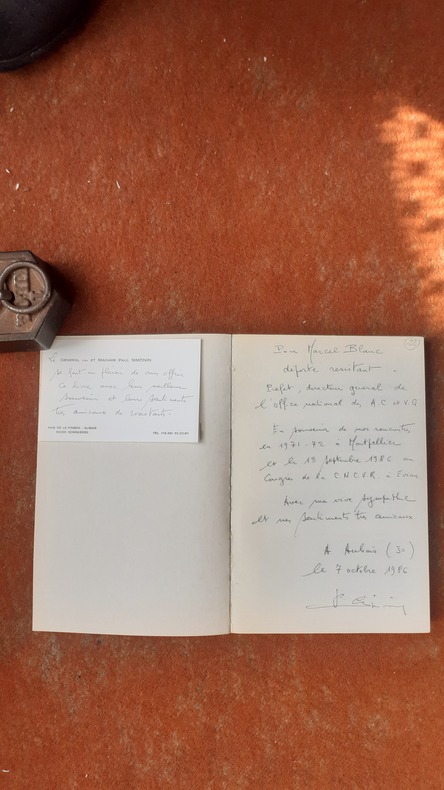 Le GÉNÉRAL (CR) ET MADAME PAUL SIMONIN
se font un plaisir de vous offrir
ce livre avec leur meilleur
souvenir et leurs sentiments
très amicaux de
AUBAIS
30250 SOMMIÈRES
TÉL.
Pour Marcel Blanc
déporté résistant.
Préfet, directeur général de
l'office national des A.C et V.G
En souvenir de nos rencontres
en 1971-72 à Montpellier
et le 19 septembre 1986 au
Congrès de la C.N.C.V.R. à Evian
Avec ma vive sympathie
et mes sentiments très amicaux
A Aubais (30)
le 7 octobre 1986